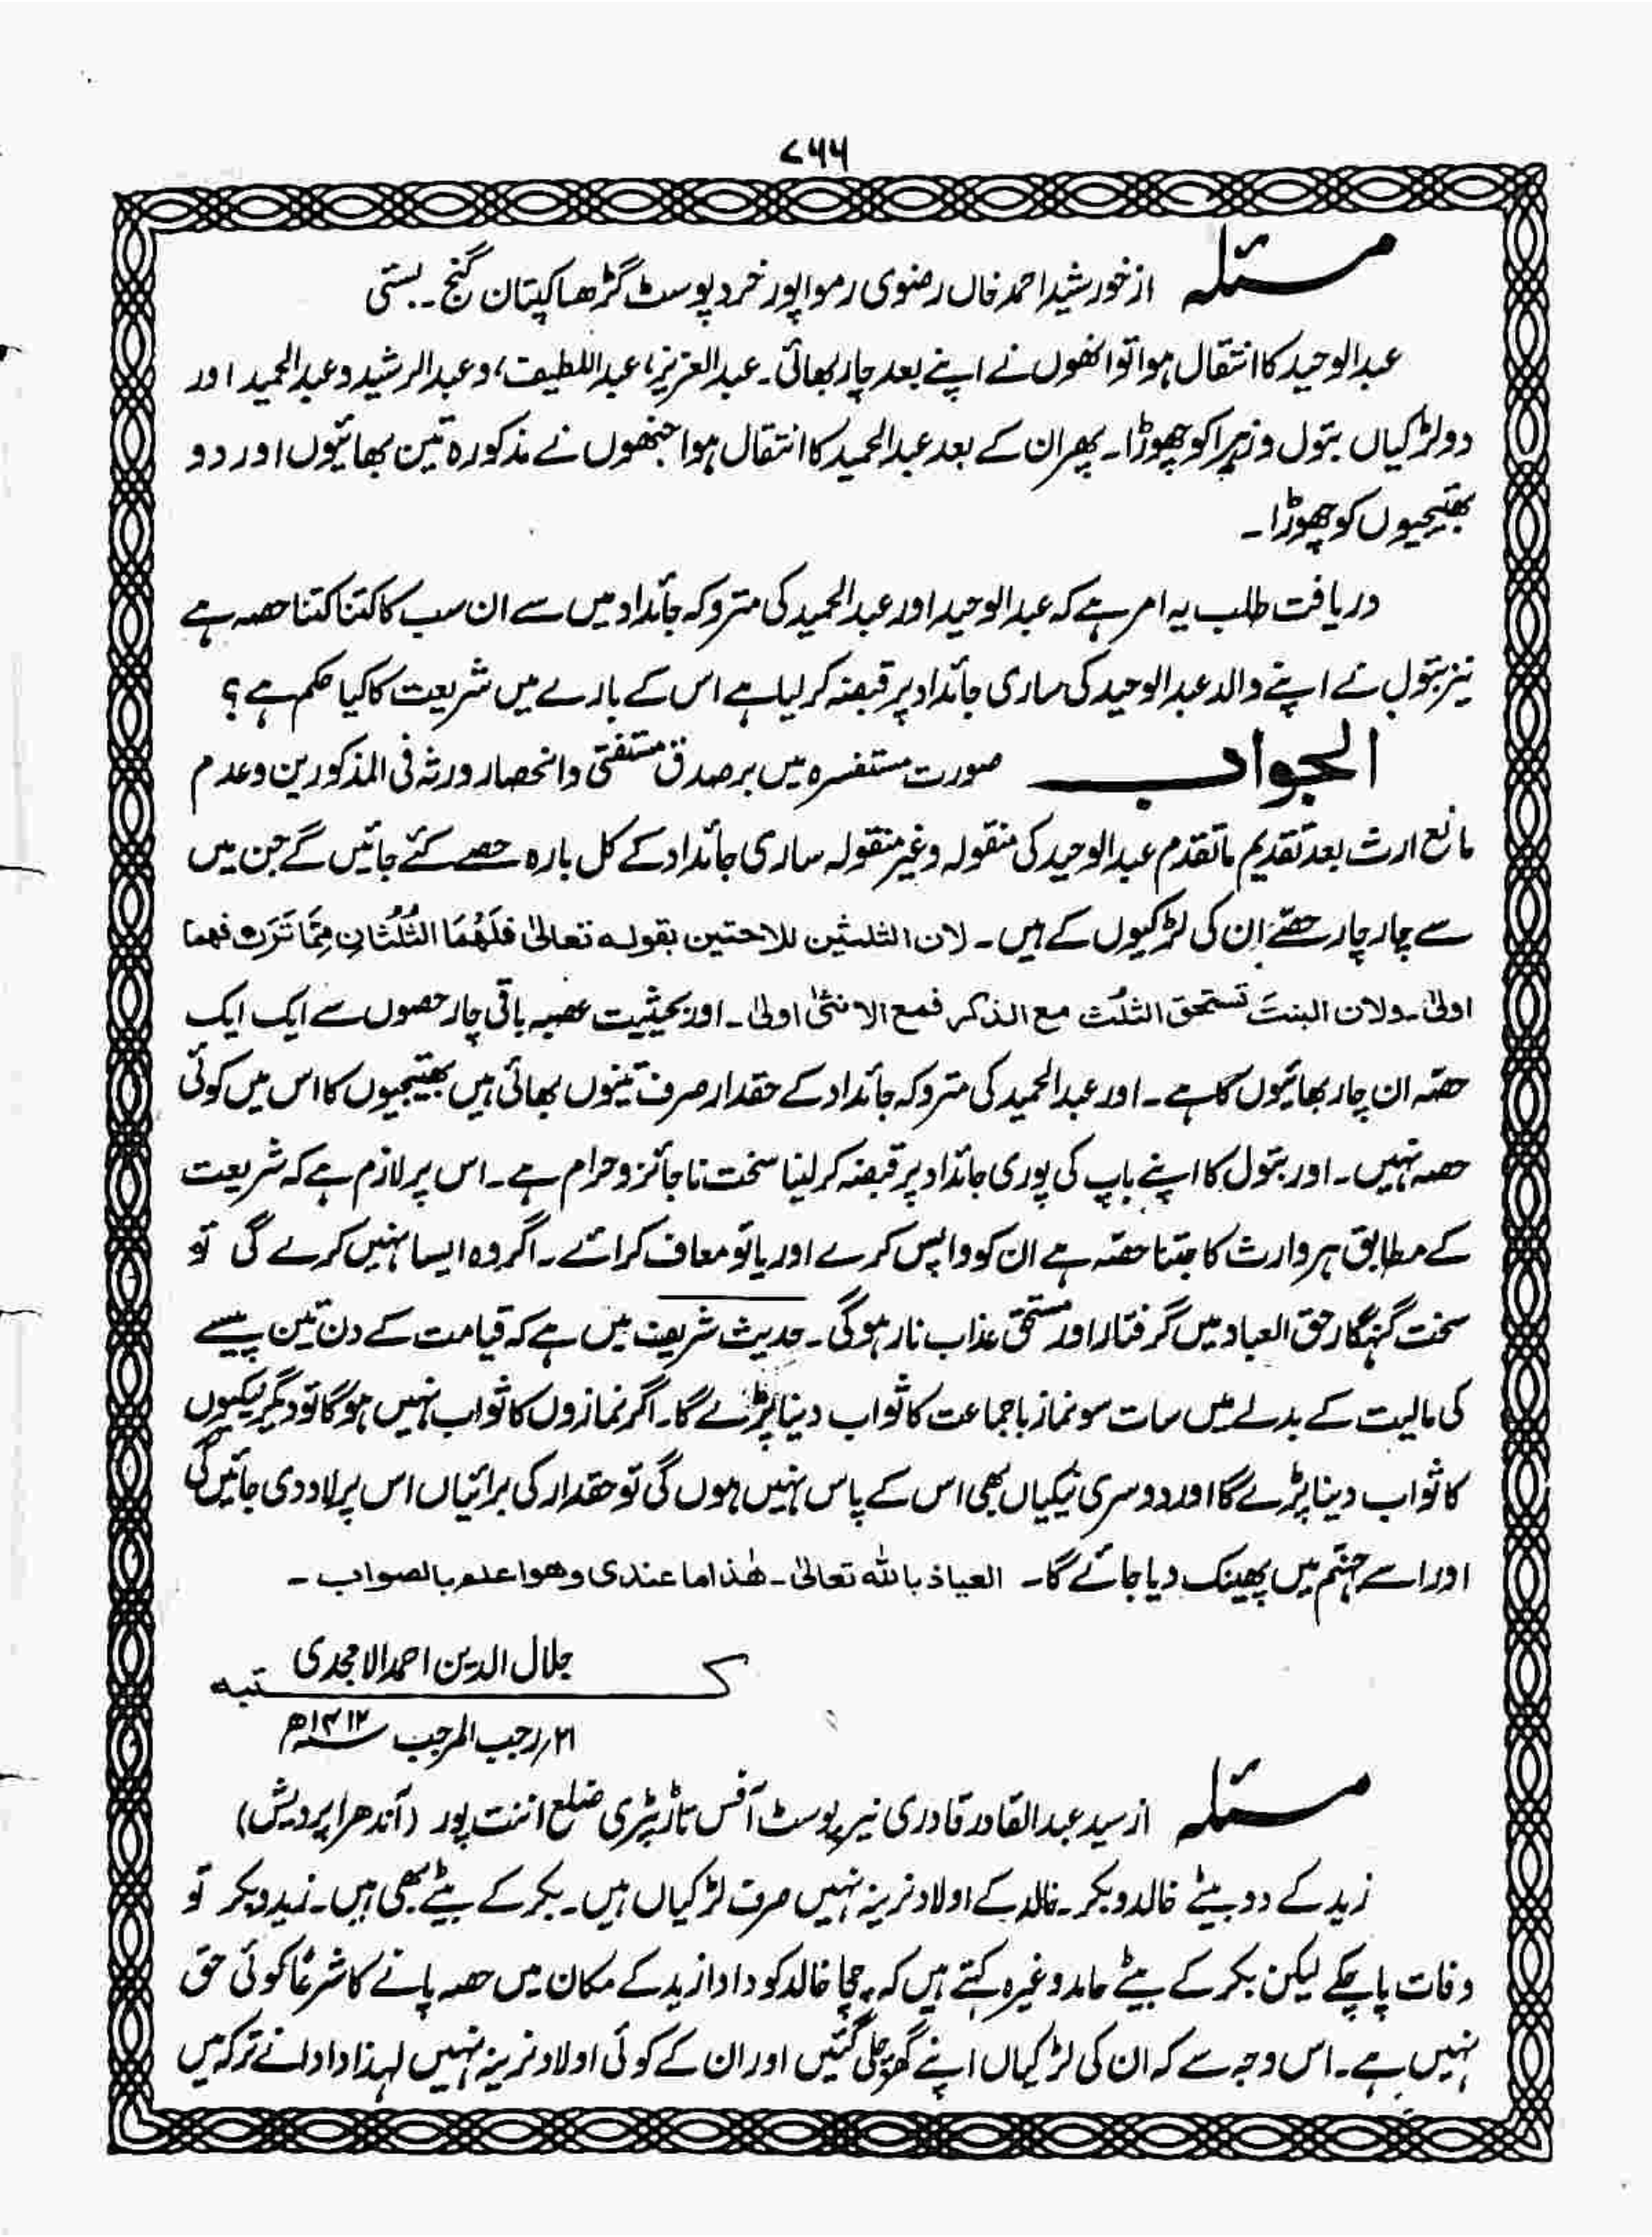 ۷۶۶
مسئلہ از خورشید احمد خاں رضوی رموا پور خرد پوسٹ گڑھا کپتان گنج ۔ بستی
عبدالوحید کا انتقال ہوا تو انھوں نے اپنے بعد چار بھائی ۔ عبدالعزیز، عبداللطیف، وعبدالرشید وعبدالحمید اور
دو لڑکیاں بتول و زہرا کو چھوڑا ۔ پھر ان کے بعد عبدالحمید کا انتقال ہوا جنھوں نے مذکورہ تین بھائیوں اور دو
بھتیجیوں کو چھوڑا ۔
دریافت طلب یہ امر ہے کہ عبدالوحید اور عبدالحمید کی متروکہ جائداد میں سے ان سب کا کتنا کتنا حصہ ہے
نیز بتول نے اپنے والد عبدالوحید کی ساری جائداد پر قبضہ کر لیا ہے اس کے بارے میں شریعت کا کیا حکم ہے ؟
الجواب صورت مستفسرہ میں بر صدق مستفتی وانحصار ورثہ فی المذکورین وعدم
مانع ارث بعد تقدیم ماتقدم عبدالوحید کی منقولہ وغیر منقولہ ساری جائداد کے کل بارہ حصے کئے جائیں گے جن میں
سے چار چار حصے ان کی لڑکیوں کے ہیں ۔ لان الثلثین للاختین بقولہ تعالیٰ فَلَهُمَا الثُّلُثَانِ مِمَّا تَرَكَ فهما
اولیٰ ۔ ولان البنتَ تستحق الثلُث مع الذکر فمع الانثیٰ اولیٰ ۔ اور بحیثیت عصبہ باقی چار حصوں سے ایک ایک
حصّہ ان چار بھائیوں کا ہے ۔ اور عبدالحمید کی متروکہ جائداد کے حقدار صرف تینوں بھائی ہیں بھتیجیوں کا اس میں کوئی
حصہ نہیں ۔ اور بتول کا اپنے باپ کی پوری جائداد پر قبضہ کر لینا سخت ناجائز و حرام ہے ۔ اس پر لازم ہے کہ شریعت
کے مطابق ہر وارث کا جتنا حصّہ ہے ان کو واپس کرے اور یا تو معاف کرائے ۔ اگر وہ ایسا نہیں کرے گی تو
سخت گنہگار حق العباد میں گرفتار اور مستحق عذاب نار ہوگی ۔ حدیث شریف میں ہے کہ قیامت کے دن تین پیسے
کی مالیت کے بدلے میں سات سو نماز باجماعت کا ثواب دینا پڑے گا۔ اگر نمازوں کا ثواب نہیں ہوگا تو دیگر نیکیوں
کا ثواب دینا پڑے گا اور دوسری نیکیاں بھی اس کے پاس نہیں ہوں گی تو حقدار کی برائیاں اس پر لاد دی جائیں گی
اور اسے جہنّم میں پھینک دیا جائے گا ۔ العیاذ باللہ تعالیٰ ۔ ھٰذا ما عندی وھو اعلم بالصواب ۔
جلال الدین احمد الامجدی
کتبہ
۲۱؍ رجب المرجب ۱۴۱۲ھ
مسئلہ از سید عبدالقادر قادری نیر پوسٹ آفس تاڑپتری ضلع اننت پور (آندھرا پردیش)
زید کے دو بیٹے خالد و بکر ۔ خالد کے اولاد نرینہ نہیں صرف لڑکیاں ہیں ۔ بکر کے بیٹے بھی ہیں ۔ زید و بکر تو
وفات پاچکے لیکن بکر کے بیٹے حامد وغیرہ کہتے ہیں کہ چچا خالد کو دادا زید کے مکان میں حصہ پانے کا شرعًا کوئی حق
نہیں ہے ۔ اس وجہ سے کہ ان کی لڑکیاں اپنے گھر چلی گئیں اور ان کے کوئی اولاد نرینہ نہیں لہذا دادا نے ترکہ میں